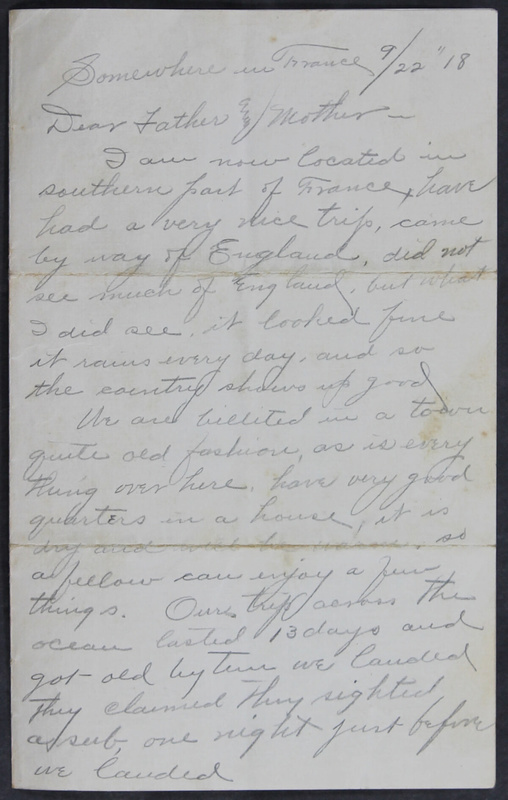 Somewhere in France 9/22 "18
Dear Father & Mother –
I am now located in
southern part of France, have
had a very nice trip, came
by way of England, did not
see much of England, but what
I did see, it looked fine
it rains every day, and so
the country shows up good
We are billited in a town
quite old fashion, as is every
thing over here, have very good
quarters in a house, it is
dry and will be warm, so
a fellow can enjoy a few
things. Our trip across the
ocean lasted 13 days and
got old by time we landed
They claimed they sighted
a sub, one night just before
we landed